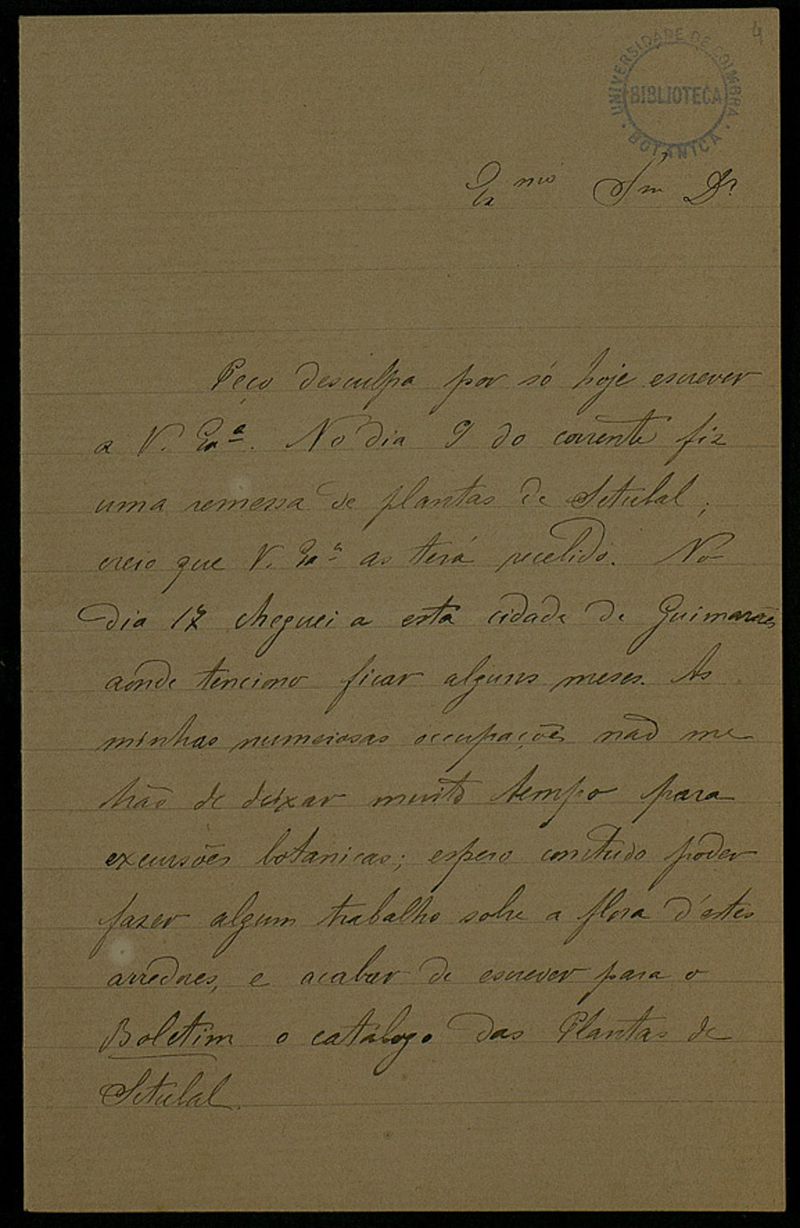 4
UNIVERSIDADE DE COIMBRA
BIBLIOTECA
BOTANICA
Exmo Snr Dr
Peço desculpa por só hoje escrever
a V. Exª. No dia 9 do corrente fiz
uma remessa de plantas de Setubal;
creio que V. Exª as terá recebido. No
dia 17 cheguei a esta cidade de Guimarães
aonde tenciono ficar alguns meses. As
minhas numerosas occupações não me
hão de deixar muito tempo para
excursões botanicas; espero comtudo poder
fazer algum trabalho sobre a flora d'estes
arredores, e acabar de escrever para o
Boletim o catálogo das Plantas de
Setubal.